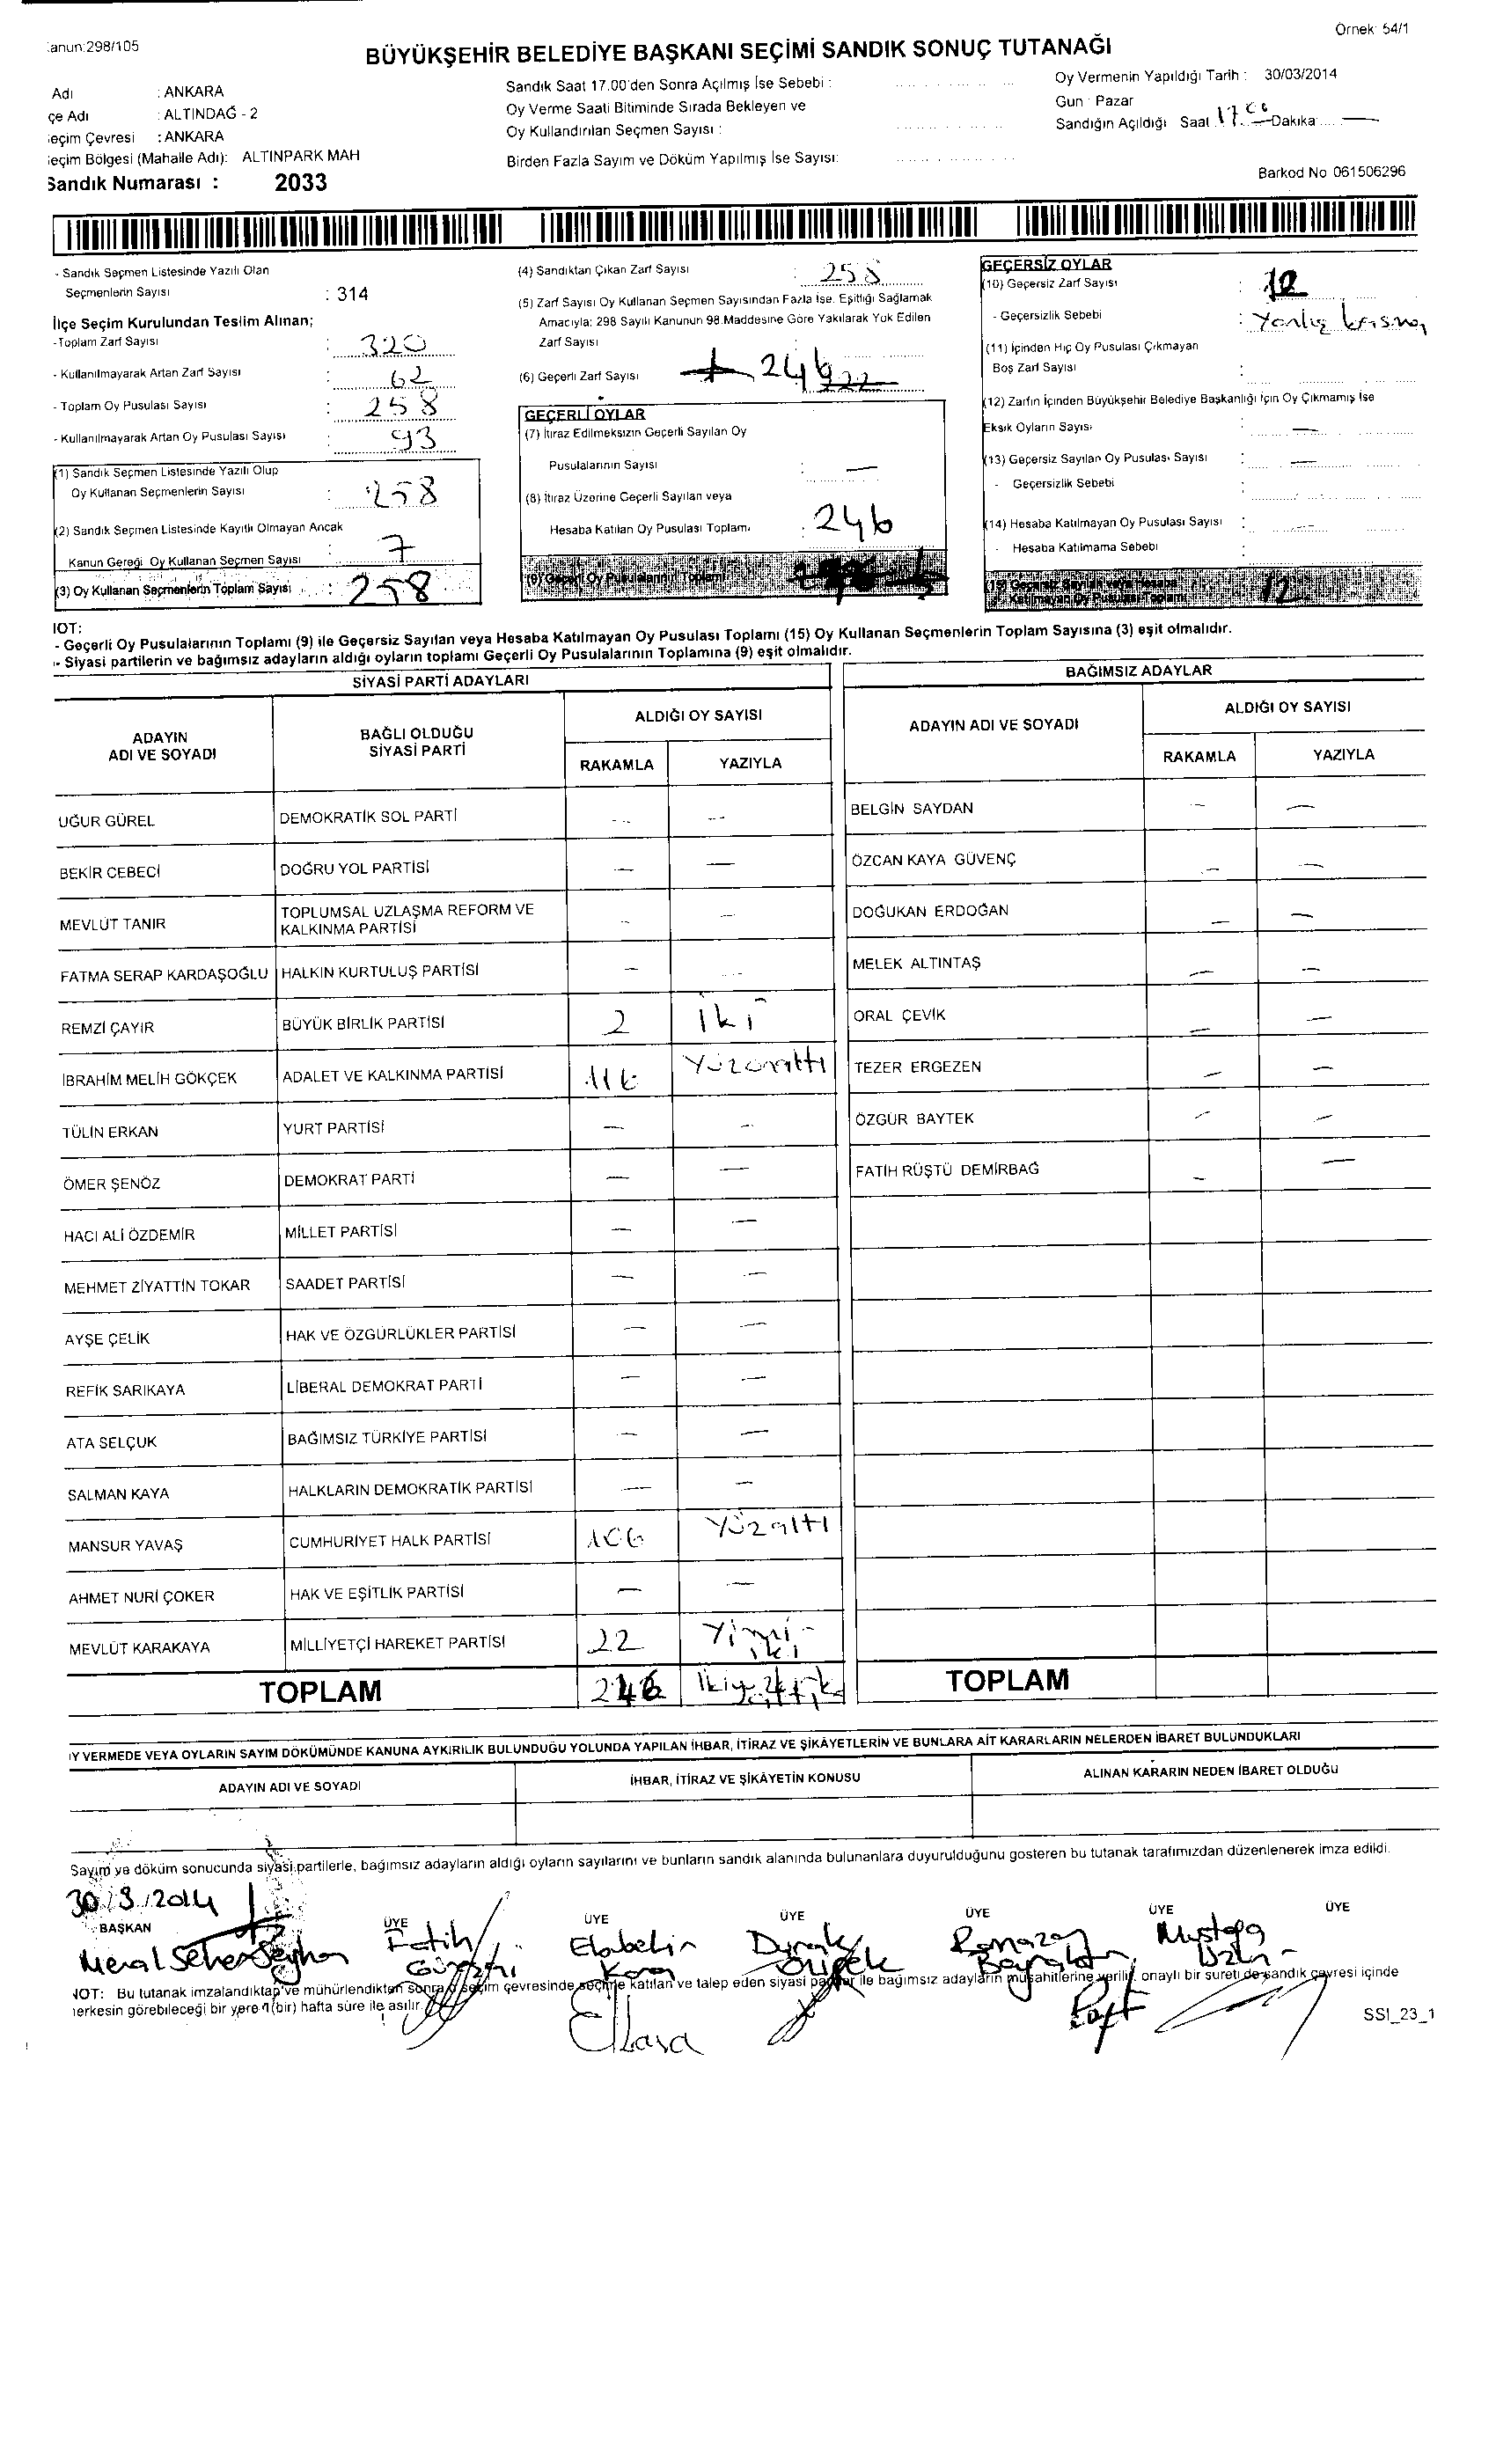 Örnek: 54/1
anun:298/105
BÜYÜKŞEHİR BELEDİYE BAŞKANI SEÇİMİ SANDIK SONUÇ TUTANAĞI
Adı : ANKARA
çe Adı : ALTINDAĞ - 2
eçim Çevresi : ANKARA
eçim Bölgesi (Mahalle Adı): ALTINPARK MAH
Sandık Numarası : 2033
Sandık Saat 17.00'den Sonra Açılmış İse Sebebi :
Oy Verme Saati Bitiminde Sırada Bekleyen ve
Oy Kullandırılan Seçmen Sayısı :
Birden Fazla Sayım ve Döküm Yapılmış İse Sayısı:
Oy Vermenin Yapıldığı Tarih : 30/03/2014
Gün : Pazar
Sandığın Açıldığı Saat 17.00 Dakika —
Barkod No 061506296
- Sandık Seçmen Listesinde Yazılı Olan
Seçmenlerin Sayısı : 314
İlçe Seçim Kurulundan Teslim Alınan;
-Toplam Zarf Sayısı : 320
- Kullanılmayarak Artan Zarf Sayısı : 62
- Toplam Oy Pusulası Sayısı : 258
- Kullanılmayarak Artan Oy Pusulası Sayısı : 93
(1) Sandık Seçmen Listesinde Yazılı Olup
Oy Kullanan Seçmenlerin Sayısı : 258
(2) Sandık Seçmen Listesinde Kayıtlı Olmayan Ancak
Kanun Gereği Oy Kullanan Seçmen Sayısı : 7
(3) Oy Kullanan Seçmenlerin Toplam Sayısı : 258
(4) Sandıktan Çıkan Zarf Sayısı : 258
(5) Zarf Sayısı Oy Kullanan Seçmen Sayısından Fazla İse, Eşitliği Sağlamak
Amacıyla: 298 Sayılı Kanunun 98.Maddesine Göre Yakılarak Yok Edilen
Zarf Sayısı :
(6) Geçerli Zarf Sayısı 246
GEÇERLİ OYLAR
(7) İtiraz Edilmeksizin Geçerli Sayılan Oy
Pusulalarının Sayısı : —
(8) İtiraz Üzerine Geçerli Sayılan veya
Hesaba Katılan Oy Pusulası Toplamı : 246
(9) Geçerli Oy Pusulalarının Toplamı
GEÇERSİZ OYLAR
(10) Geçersiz Zarf Sayısı : 12
- Geçersizlik Sebebi : Yanlış basma
(11) İçinden Hiç Oy Pusulası Çıkmayan
Boş Zarf Sayısı :
(12) Zarfın İçinden Büyükşehir Belediye Başkanlığı İçin Oy Çıkmamış İse
Eksik Oyların Sayısı : —
(13) Geçersiz Sayılan Oy Pusulası Sayısı : —
- Geçersizlik Sebebi :
(14) Hesaba Katılmayan Oy Pusulası Sayısı : —
- Hesaba Katılmama Sebebi :
(15) Geçersiz Sayılan veya Hesaba
Katılmayan Oy Pusulası Toplamı 12
NOT:
- Geçerli Oy Pusulalarının Toplamı (9) ile Geçersiz Sayılan veya Hesaba Katılmayan Oy Pusulası Toplamı (15) Oy Kullanan Seçmenlerin Toplam Sayısına (3) eşit olmalıdır.
- Siyasi partilerin ve bağımsız adayların aldığı oyların toplamı Geçerli Oy Pusulalarının Toplamına (9) eşit olmalıdır.
SİYASİ PARTİ ADAYLARI
ADAYIN ADI VE SOYADI BAĞLI OLDUĞU SİYASİ PARTİ ALDIĞI OY SAYISI
RAKAMLA YAZIYLA
UĞUR GÜREL DEMOKRATİK SOL PARTİ — —
BEKİR CEBECİ DOĞRU YOL PARTİSİ — —
MEVLÜT TANIR TOPLUMSAL UZLAŞMA REFORM VE KALKINMA PARTİSİ — —
FATMA SERAP KARDAŞOĞLU HALKIN KURTULUŞ PARTİSİ — —
REMZİ ÇAYIR BÜYÜK BİRLİK PARTİSİ 2 İki
İBRAHİM MELİH GÖKÇEK ADALET VE KALKINMA PARTİSİ 116 Yüzonaltı
TÜLİN ERKAN YURT PARTİSİ — —
ÖMER ŞENÖZ DEMOKRAT PARTİ — —
HACI ALİ ÖZDEMİR MİLLET PARTİSİ — —
MEHMET ZİYATTİN TOKAR SAADET PARTİSİ — —
AYŞE ÇELİK HAK VE ÖZGÜRLÜKLER PARTİSİ — —
REFİK SARIKAYA LİBERAL DEMOKRAT PARTİ — —
ATA SELÇUK BAĞIMSIZ TÜRKİYE PARTİSİ — —
SALMAN KAYA HALKLARIN DEMOKRATİK PARTİSİ — —
MANSUR YAVAŞ CUMHURİYET HALK PARTİSİ 106 Yüzaltı
AHMET NURİ ÇOKER HAK VE EŞİTLİK PARTİSİ — —
MEVLÜT KARAKAYA MİLLİYETÇİ HAREKET PARTİSİ 22 Yirmi iki
TOPLAM 246
BAĞIMSIZ ADAYLAR
ADAYIN ADI VE SOYADI ALDIĞI OY SAYISI
RAKAMLA YAZIYLA
BELGİN SAYDAN — —
ÖZCAN KAYA GÜVENÇ — —
DOĞUKAN ERDOĞAN — —
MELEK ALTINTAŞ — —
ORAL ÇEVİK — —
TEZER ERGEZEN — —
ÖZGÜR BAYTEK — —
FATİH RÜŞTÜ DEMİRBAĞ — —
TOPLAM
Y VERMEDE VEYA OYLARIN SAYIM DÖKÜMÜNDE KANUNA AYKIRILIK BULUNDUĞU YOLUNDA YAPILAN İHBAR, İTİRAZ VE ŞİKÂYETLERİN VE BUNLARA AİT KARARLARIN NELERDEN İBARET BULUNDUKLARI
ADAYIN ADI VE SOYADI İHBAR, İTİRAZ VE ŞİKÂYETİN KONUSU ALINAN KARARIN NEDEN İBARET OLDUĞU
Sayım ve döküm sonucunda siyasi partilerle, bağımsız adayların aldığı oyların sayılarını ve bunların sandık alanında bulunanlara duyurulduğunu gösteren bu tutanak tarafımızdan düzenlenerek imza edildi.
30/3/2014
BAŞKAN ÜYE ÜYE ÜYE ÜYE ÜYE ÜYE
Meral Seher Seyhan Fatih Ramazan Mustafa
NOT: Bu tutanak imzalandıktan ve mühürlendikten sonra seçim çevresinde seçime katılan ve talep eden siyasi partiler ile bağımsız adayların müşahitlerine verilir, onaylı bir sureti de sandık çevresi içinde
herkesin görebileceği bir yere 1 (bir) hafta süre ile asılır.
SSI_23_1